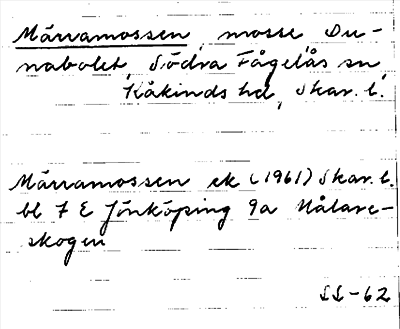 Märramossen, mosse, Du-
nabolet, Södra Fågelås sn,
Kåkinds hd, Skar. l.
Märramossen ek (1961) Skar. l.
bl 7 E Jönköping 9a Målare-
skogen
SS-62